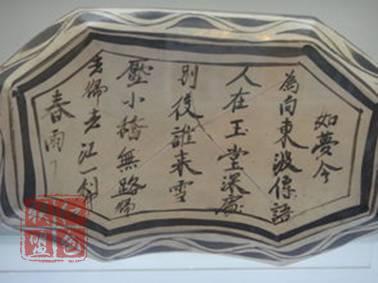 如夢令
為向東坡傳語
人在玉堂深處
別後誰來雪
壓小橋無路歸
去歸去江一犁
春雨